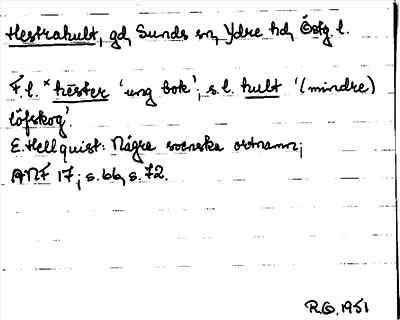 Hestrahult, gd, Sunds sn, Ydre hd, Östg. l.
F. l. *hester 'ung bok', s. l. hult '(mindre)
löfskog'.
E. Hellquist: Några svenska ortnamn;
ANF 17, s. 66, s. 72.
R.G. 1951